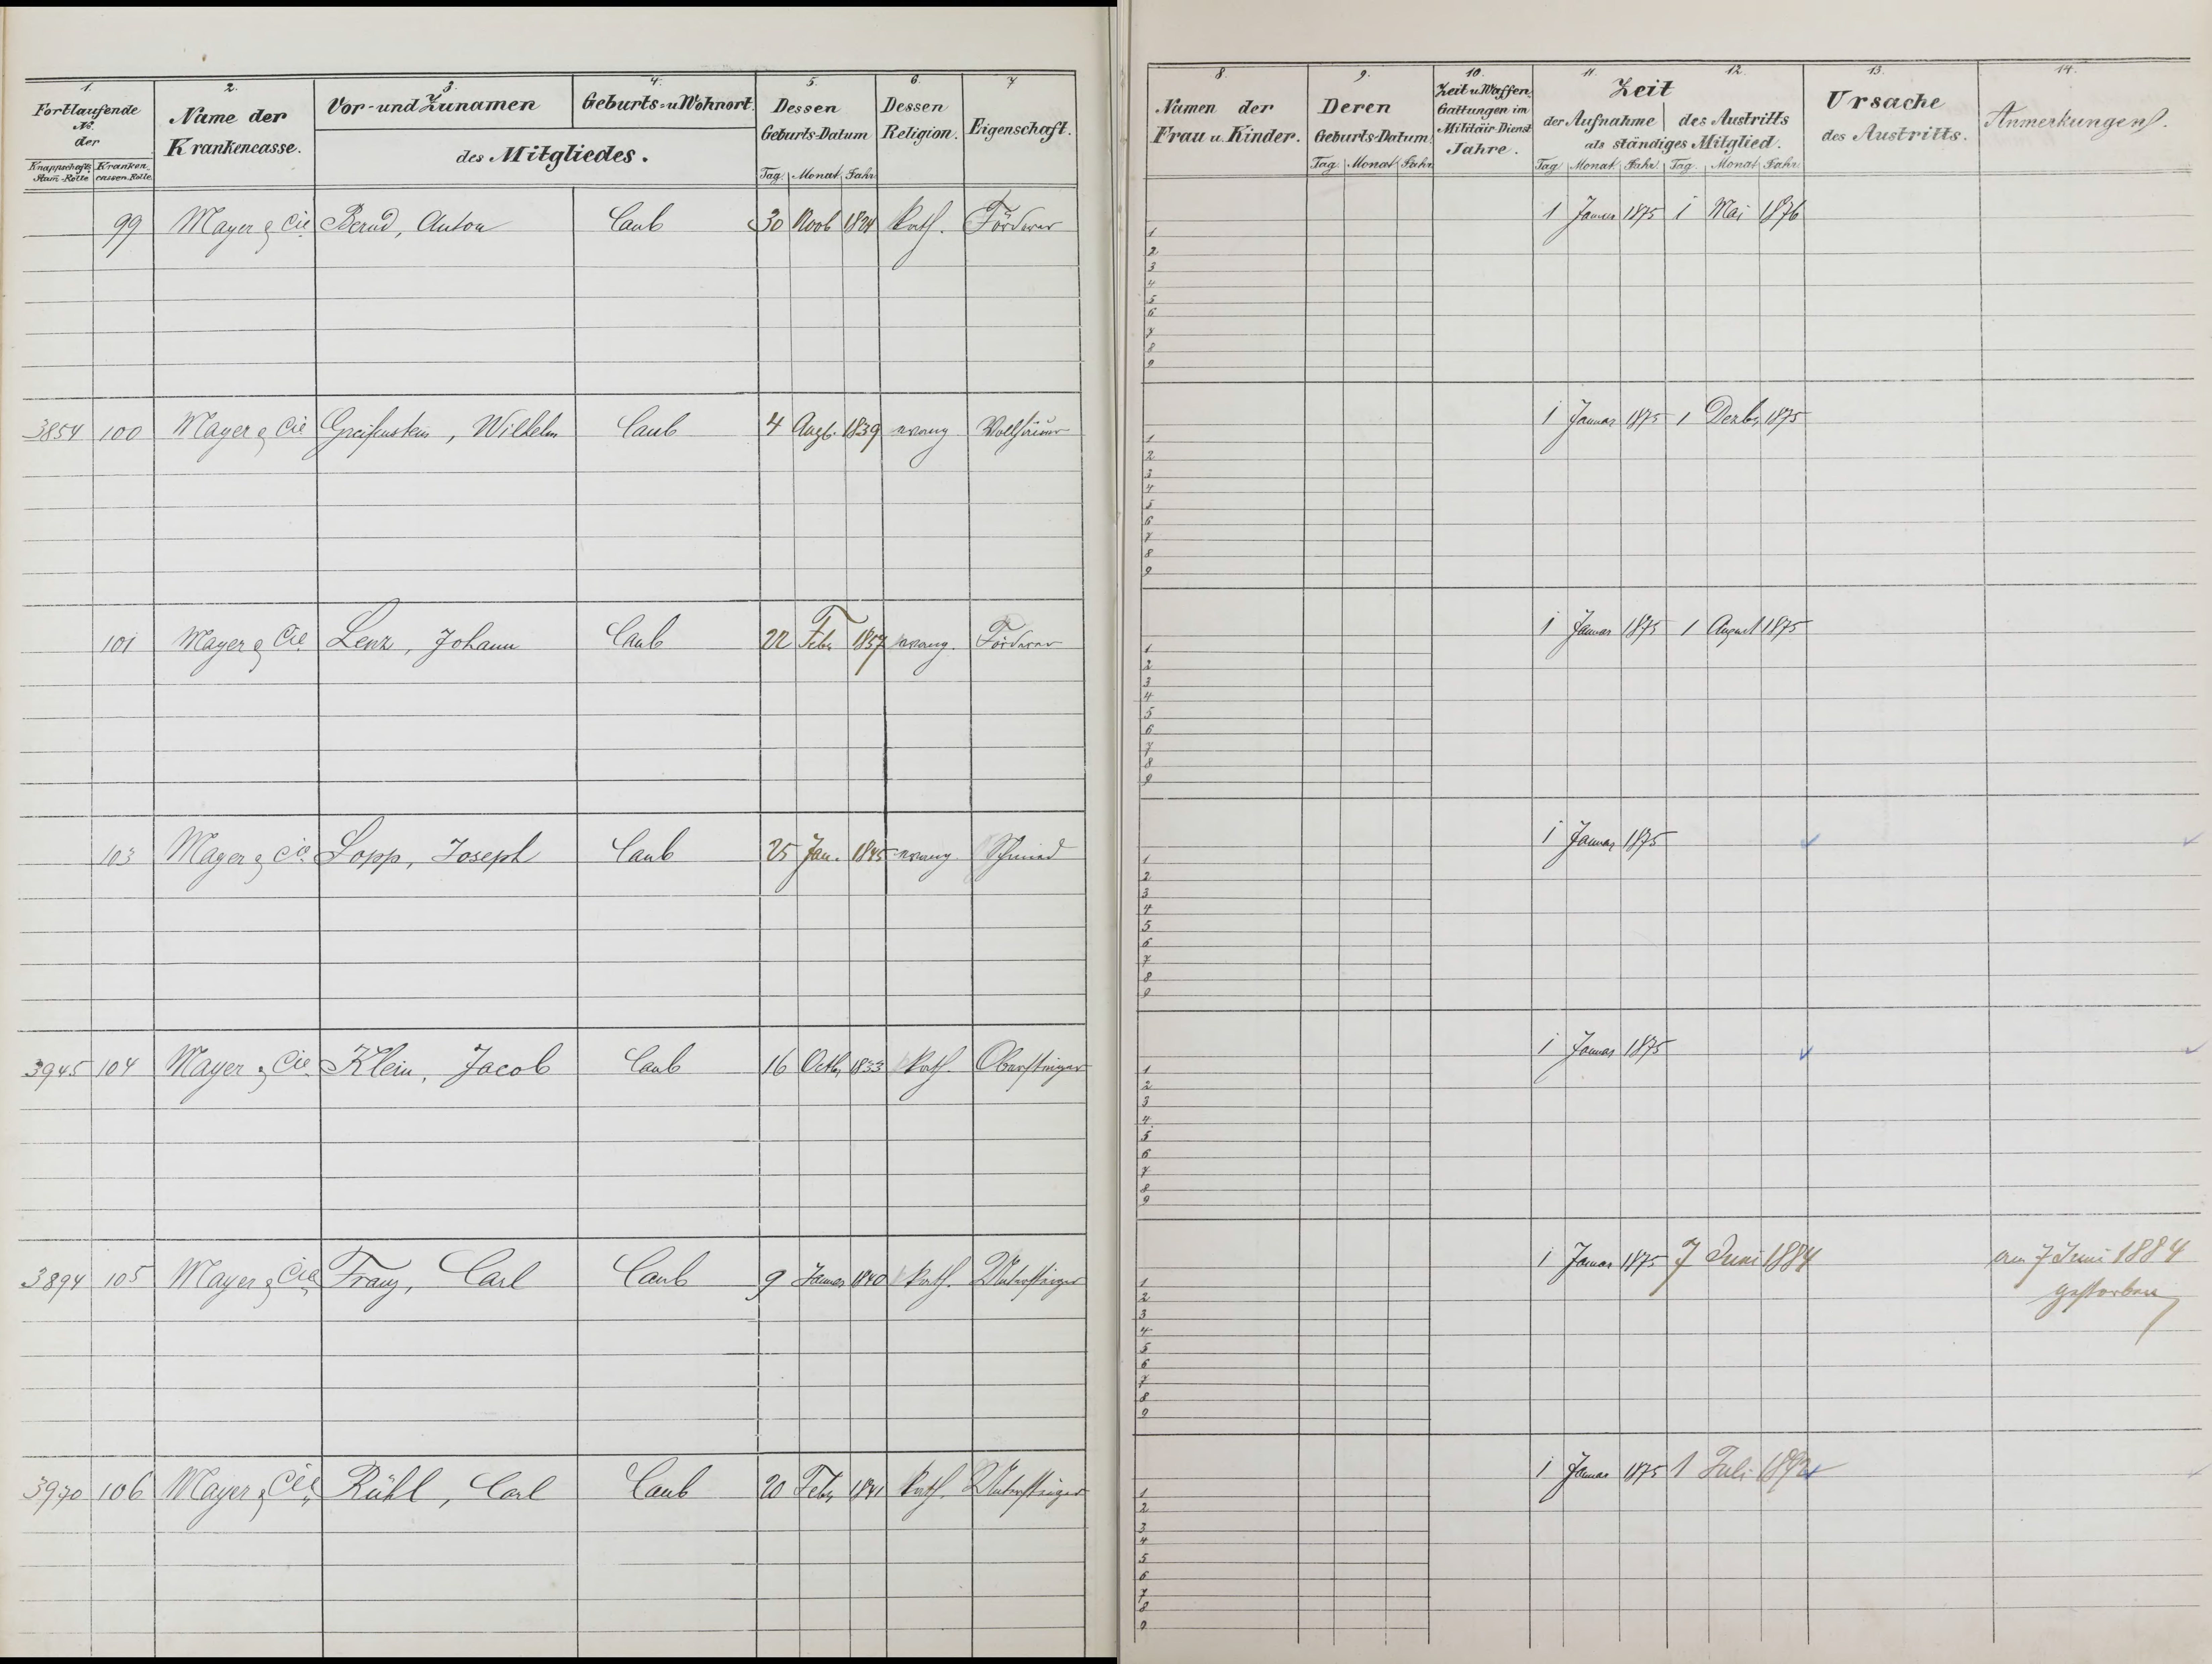 1. 2. 3. 4. 5. 6. 7
Fortlaufende
No.
der
Knappschafts Stam-Rolle Kranken cassen Rolle
Name der
Krankencasse.
Vor- und Zunamen Geburts- u. Wohnort
des Mitgliedes.
Dessen
Geburts-Datum
Tag. Monat Jahr
Dessen
Religion.
Eigenschaft.
99 Mayer & Cie Bernd, Anton Caub 30 Novb 1824 kath. Förderer
3854 100 Mayer & Cie Greifenstein, Wilhelm Caub 4 Augb. 1839 evang Vollhäuer
101 Mayer & Cie Lenz, Johann Caub 22 Feb. 1857 evang. Förderer
103 Mayer & Cie. Sopp, Joseph Caub 25 Jan. 1845 evang. Schmied
3945 104 Mayer & Cie. Klein, Jacob Caub 16 Octb. 1833 kath. Obersteiger
3894 105 Mayer & Cie. Franz, Carl Caub 9 Januar 1840 kath. Untersteiger
3970 106 Mayer & Cie. Rühl, Carl Caub 20 Feb. 1841 kath. Untersteiger
8. 9. 10. 11. 12. 13. 14.
Namen der
Frau u. Kinder.
Deren
Geburts-Datum.
Tag. Monat Jahr
Zeit u. Waffen
Gattungen im
Militäir-Dienst
Jahre.
Zeit
der Aufnahme des Austritts
als ständiges Mitglied.
Tag. Monat. Jahr. Tag. Monat Jahr.
Ursache
des Austritts.
Anmerkungen.
1 Januar 1875 1 Mai 1876
1
2
3
4
5
6
7
8
9
1 Januar 1875 1 Dezbr. 1875
1
2
3
4
5
6
7
8
9
1 Januar 1875 1 August 1875
1
2
3
4
5
6
7
8
9
1 Januar 1875
1
2
3
4
5
6
7
8
9
1 Januar 1875
1
2
3
4
5
6
7
8
9
1 Januar 1875 7 Juni 1884 am 7 Juni 1884
gestorben
1
2
3
4
5
6
7
8
9
1 Januar 1875 1 Juli
1
2
3
4
5
6
7
8
9